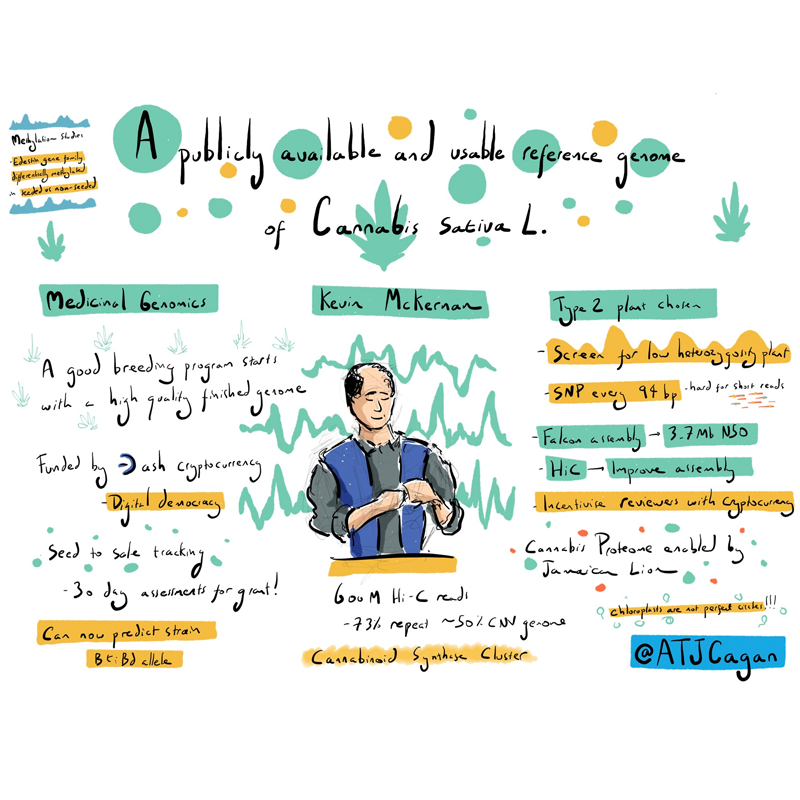 A publicly available and usable reference genome
of Cannabis Sativa L.
Methylation Studies
- Edestin gene family
differentially methylated
in seeded vs non-seeded
Medicinal Genomics
A good breeding program starts
with a high quality finished genome
Funded by Dash cryptocurrency
- Digital democracy
Seed to sale tracking
- 30 day assessments for grant!
Can now predict strain
Bt:Bd allele
Kevin McKernan
600 M Hi-C reads
- 73% repeat ~50% CNV genome
Cannabinoid Synthase Cluster
Type 2 plant chosen
- Screen for low heterozygosity plant
- SNP every 94 bp - hard for short reads
- Falcon assembly → 3.7Mb N50
- HiC → Improve assembly
- Incentivise reviewers with cryptocurrency
Cannabis Proteome enabled by
Jamaican Lion
chloroplasts are not perfect circles!!!
@ATJCagan